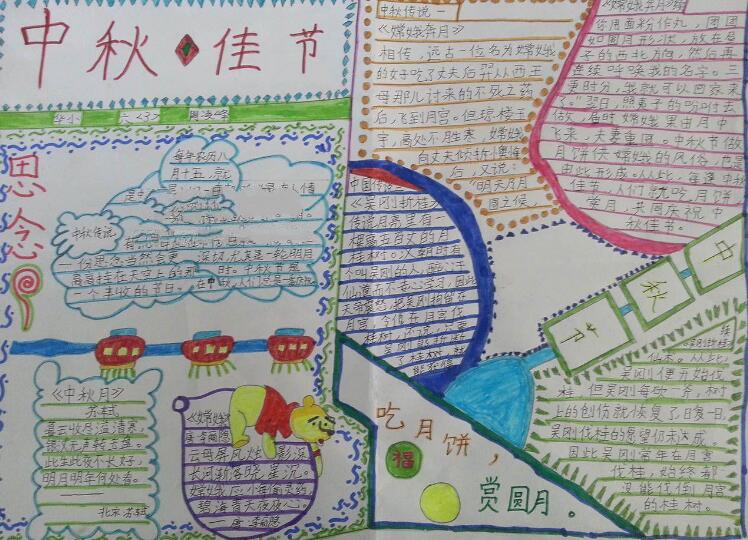 中秋佳节
华小 六〈3〉
思念
每年农历八
月十五,就
中秋传说
一份思念当然会更深切,尤其是一轮明月
高高挂在天空上的那 时。中秋节是
一个丰收的节日。在中
《中秋月》
苏轼
暮云收尽溢清寒,
银汉无声转玉盘。
此生此夜不长好,
明月明年何处看。
北宋 苏轼
《嫦娥》
唐 李商隐
云母屏风烛影深,
长河渐落晓星沉。
嫦娥应悔偷灵药
碧海青天夜夜心。
——唐·李商隐
中秋传说一
《嫦娥奔月》
相传,远古一位名为嫦娥
的女子吃了丈夫后羿从西王
母那儿讨来的不死之药
后,飞到月宫。但琼楼玉
宇,高处不胜寒。嫦娥
向丈夫倾诉懊悔
后,又说:
“明天乃月
圆之候,
《嫦娥奔月》续
你用面粉作丸,团团
如圆月形状,放在屋
子的西北方向,然后再
连续呼唤我的名字。三
更时分,我就可以回家来
了。”翌日,照妻子的吩咐去
做,届时嫦娥果由月中
飞来,夫妻重圆。中秋节做
月饼供嫦娥的风俗,也是
由此形成。从此,每逢中秋
佳节,人们就吃月饼,
赏月,共同庆祝中
秋佳节。
中国传说二
《吴刚折桂》
传说月亮里有一
棵高五百丈的月
桂树。汉朝时有
个叫吴刚的人,醉心于
仙道而不专心学习,因此
天帝震怒,把吴刚拘留在
月宫,令他在月宫伐
桂树,还说,只要
吴刚能折断
了桂树,就
能获得
中秋节
续
《吴刚折桂》
仙术。从此,
吴刚便开始伐
桂,但吴刚每砍一斧,树
上的创伤就恢复了,日复一日,
吴刚伐桂的愿望仍未达成。
因此吴刚常年在月宫
伐桂,始终都
没能伐倒月宫
的桂树。
吃月饼,
福
赏圆月。